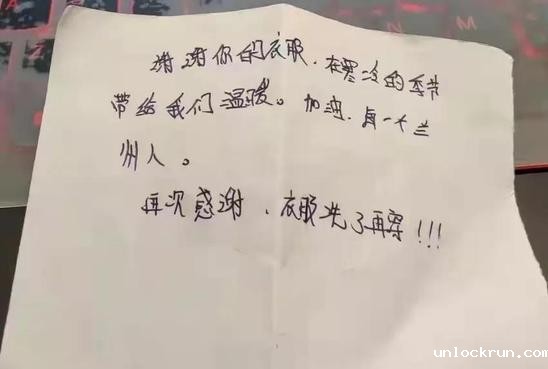 谢谢你的衣服，在寒冷的季节
带给我们温暖。加油，每一个兰
州人。
再次感谢，衣服洗了再穿!!!
unlockrun.com